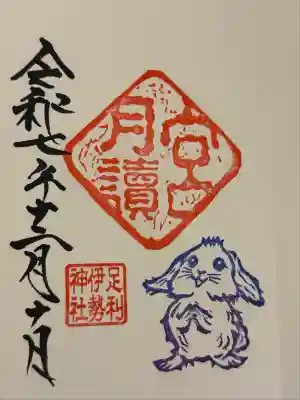 月讀宮
足利
伊勢
神社
令和七年十二月十日